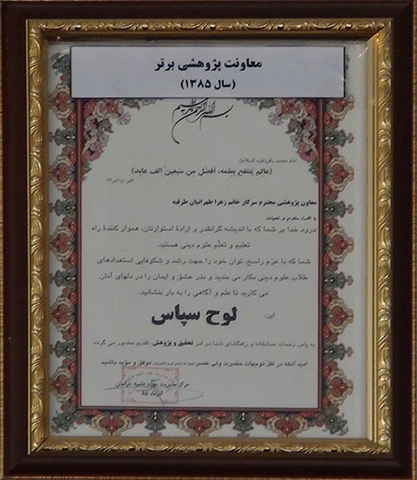 معاونت پژوهشی برتر
(سال ۱۳۸۵)
بسم الله الرحمن الرحیم
امام محمد باقر(علیه السلام):
(عالِم یُنتَفع بِعلمه، اَفضَل مِن سَبعین اَلف عابد)
معاون پژوهشی محترم سرکار خانم زهرا طهرانیان طرقبه
با اهداء سلام و تحیات
درود خدا بر شما که با اندیشه گرانقدر و ارادهٔ استوارتان، هموار کنندهٔ راه
تعلیم و تعلّم علوم دینی هستید.
شما که با عزم راسخ، توان خود را جهت رشد و شکوفایی استعدادهای
طلاب علوم دینی بکار می بندید و بذر عشق و ایمان را در دلهای آنان
می کارید تا علم و آگاهی را به بار بنشانید.
این
لوح سپاس
به پاس زحمات صادقانه و راهگشای شما در امر تحقیق و پژوهش، تقدیم حضور می گردد.
امید آنکه در ظل توجهات حضرت ولی عصر موفق و مؤید باشید
مرکز مدیریت حوزه علمیه خراسان